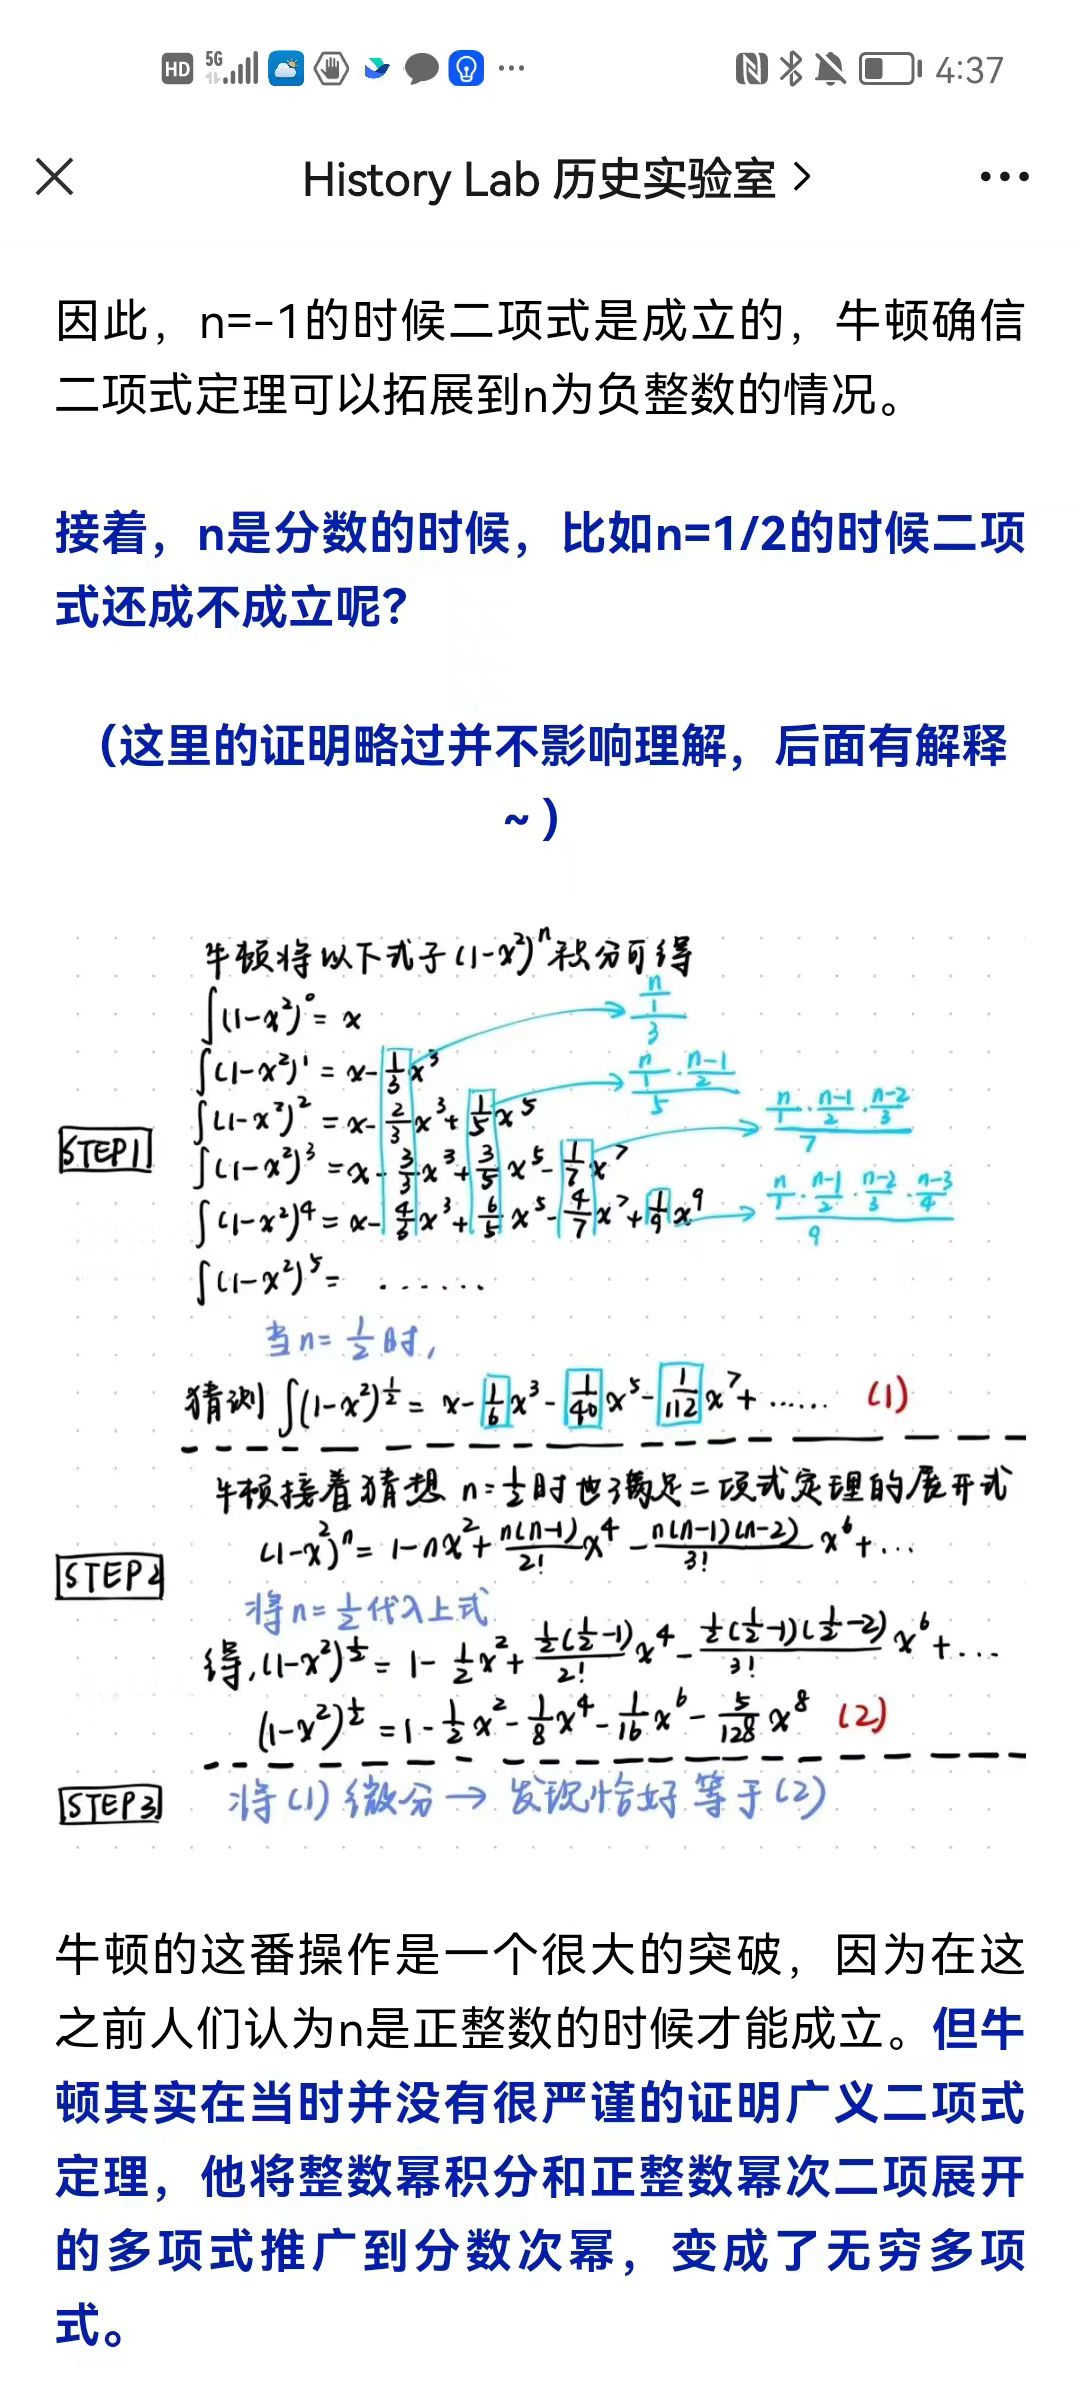 HD 5G 4:37
History Lab 历史实验室
因此，n=-1的时候二项式是成立的，牛顿确信
二项式定理可以拓展到n为负整数的情况。
接着，n是分数的时候，比如n=1/2的时候二项
式还成不成立呢？
（这里的证明略过并不影响理解，后面有解释
~）
牛顿将以下式子(1-x²)ⁿ积分可得
∫(1-x²)⁰= x
n/1/3
∫(1-x²)¹ = x-1/3x³
n/1·n-1/2/5
∫(1-x²)² = x-2/3x³+1/5x⁵
n/1·n-1/2·n-2/3/7
STEP1
∫(1-x²)³ =x-3/3x³+3/5x⁵-1/7x⁷
∫(1-x²)⁴ = x-4/3x³+6/5x⁵-4/7x⁷+1/9x⁹
n/1·n-1/2·n-2/3·n-3/4/9
∫(1-x²)⁵= ......
当n=1/2时，
猜测∫(1-x²)^1/2 = x-1/6x³-1/40x⁵-1/112x⁷+...... (1)
牛顿接着猜想 n=1/2时也满足二项式定理的展开式
(1-x²)ⁿ= 1-nx²+n(n-1)/2!x⁴-n(n-1)(n-2)/3!x⁶+...
STEP2
将n=1/2代入上式
得,(1-x²)^1/2= 1-1/2x²+1/2(1/2-1)/2!x⁴-1/2(1/2-1)(1/2-2)/3!x⁶+...
(1-x²)^1/2 =1-1/2x²-1/8x⁴-1/16x⁶-5/128x⁸ (2)
STEP3
将(1)微分→发现恰好等于(2)
牛顿的这番操作是一个很大的突破，因为在这
之前人们认为n是正整数的时候才能成立。但牛
顿其实在当时并没有很严谨的证明广义二项式
定理，他将整数幂积分和正整数幂次二项展开
的多项式推广到分数次幂，变成了无穷多项
式。